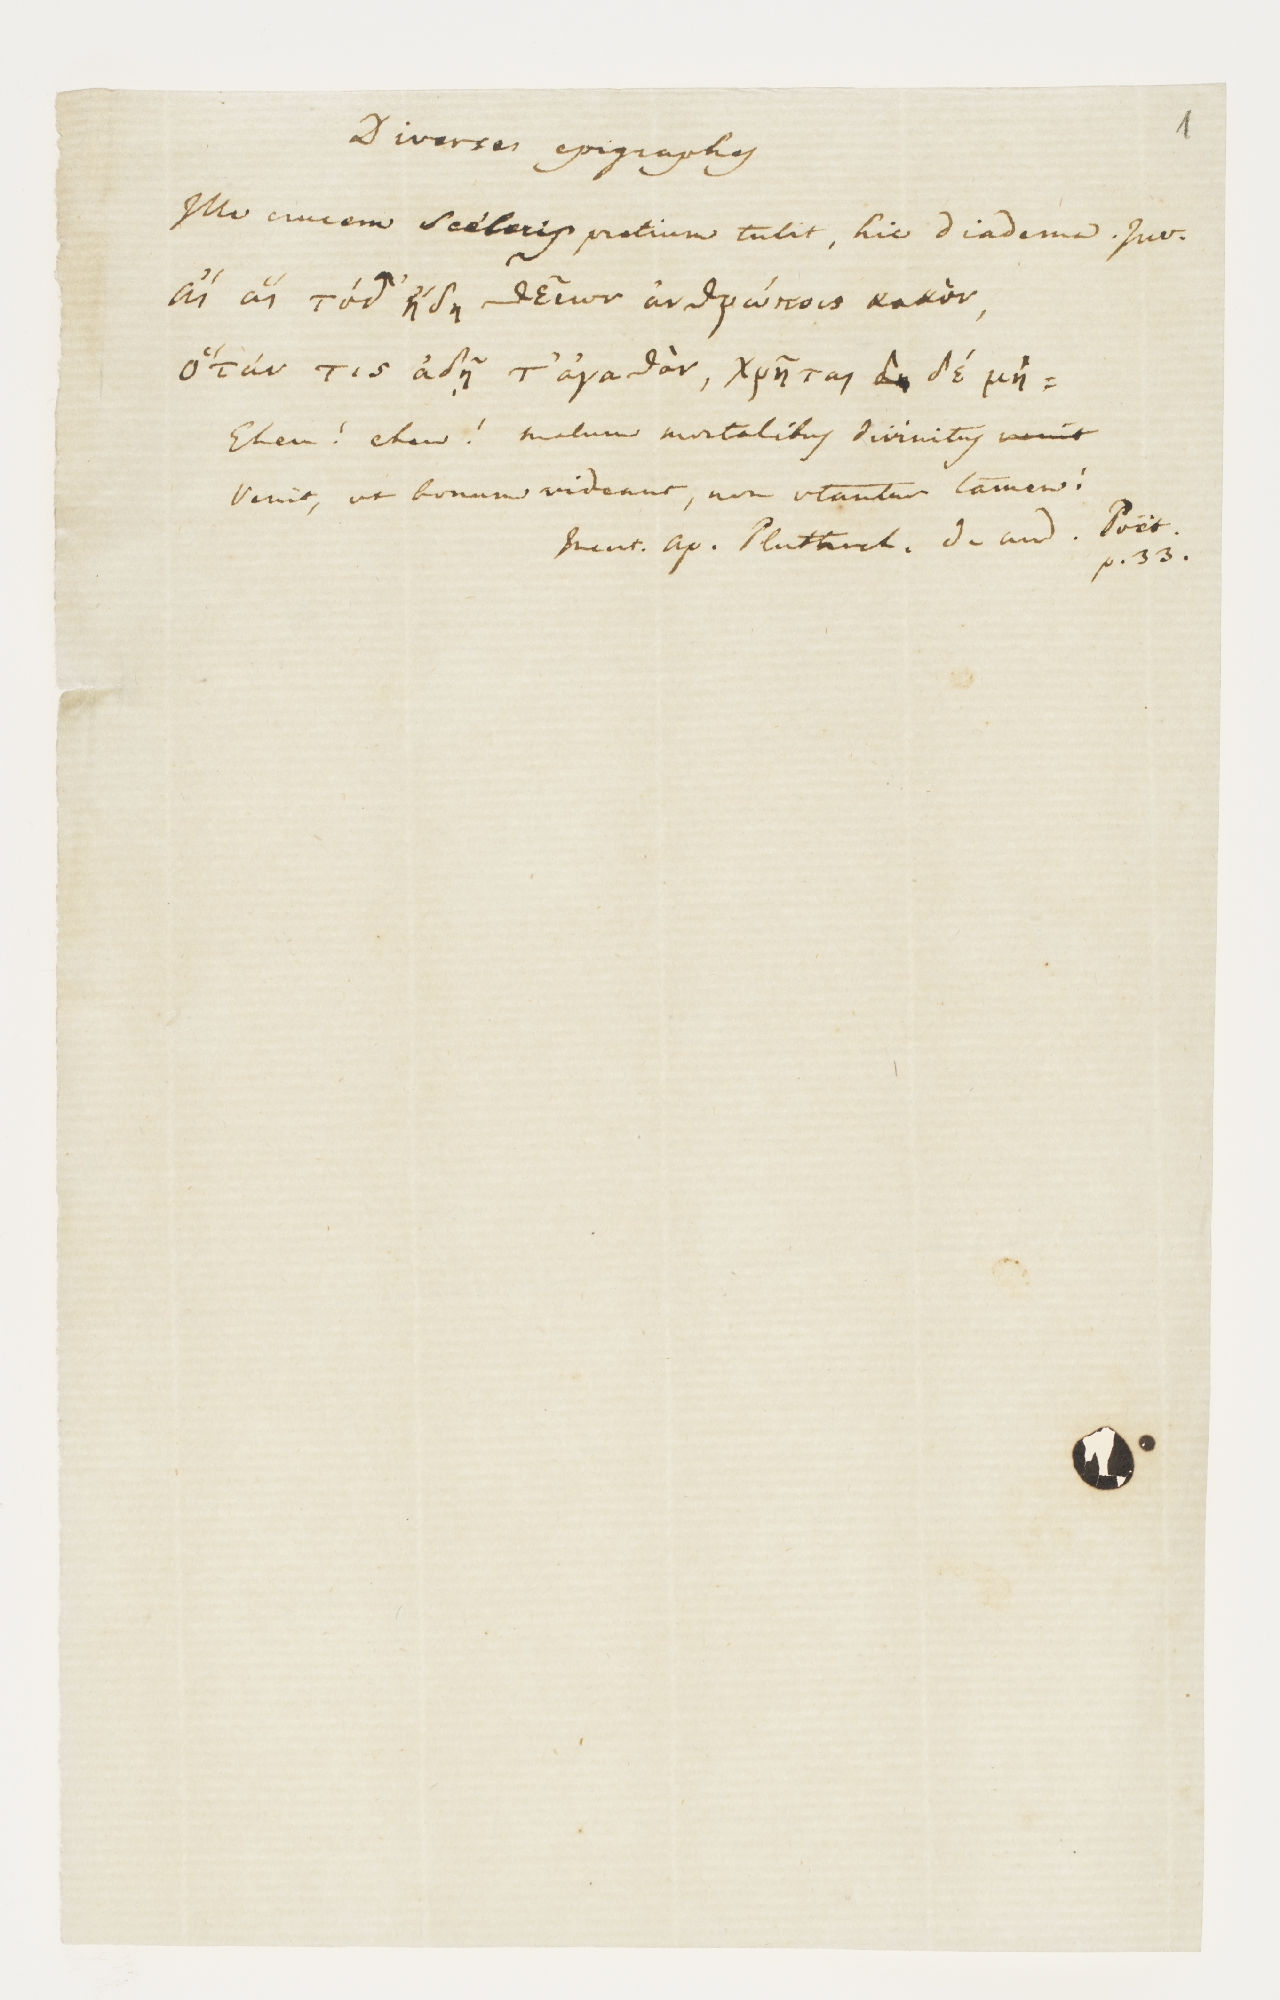 1
Diverses epigraphes
Ille crucem sceleris pretium tulit, hic diadema. Juv.
ἀί ἀί τόδ' ἤδη θεῖων ἀνθρώποις κακὸν,
ὅτάν τις ἀδῇ τ'ἀγαθὸν, χρῆται δέ μὴ =
Eheu! eheu! malum mortalibus divinitus venit
Venit, ut bonum videant, non utantur tamen!
ap. Plutarch. de aud. Poët.
p. 33.